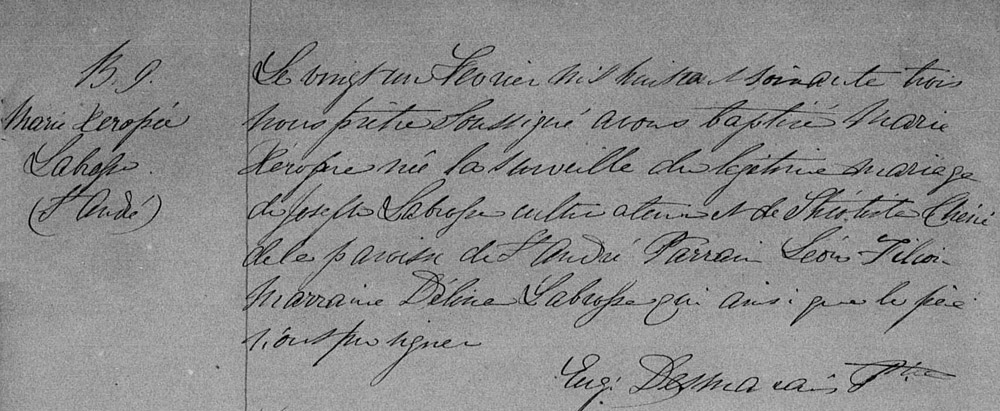 B 9.
Marie Xeropée
Labrosse.
(St André)
Le vingt un Fevrier mil huit cent soixante trois
nous prêtre soussigné avons baptisé Marie
née la surveille du légitime mariage
de Joseph Labrosse cultivateur et de Théotiste Chéné
de la paroisse de St André Parrain Léon Filion
Marraine Déline Labrosse qui ainsi que le père
n'ont pu signer
Eug. Desmarais Ptre